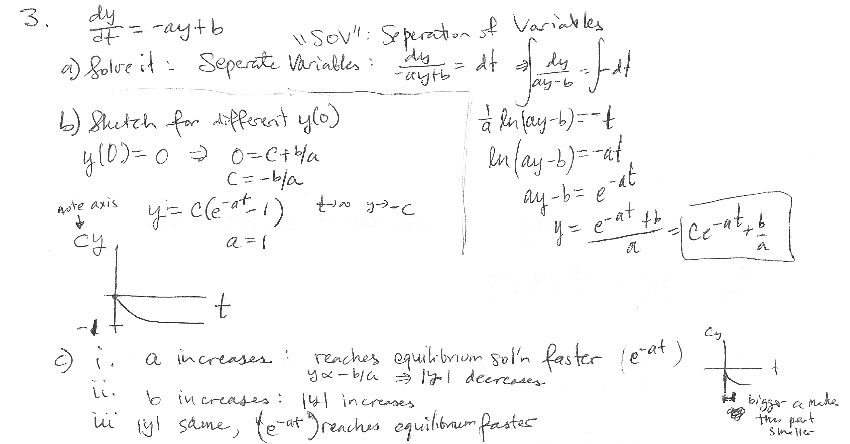 3. dy/dt = -ay+b
"SOV": Seperation of Variables
a) Solve it: Seperate Variables: dy/(-ay+b) = dt ⇒ ∫ dy/(ay-b) = ∫-dt
1/a ln(ay-b)=-t
ln(ay-b)=-at
ay-b=e^-at
y = (e^-at+b)/a = Ce^-at+b/a
b) Sketch for different y(0)
y(0)=0 ⇒ 0=C+b/a
C=-b/a
note axis
y=C(e^-at-1) t→∞ y→-C
a=1
Cy
t
-1
c) i. a increases: reaches equilibrium sol'n faster (e^-at)
y∝-b/a ⇒ |y| decreases
ii. b increases: |y| increases
iii |y| same, (e^-at) reaches equilibrium faster
Cy
t
bigger a makes
this part
smaller